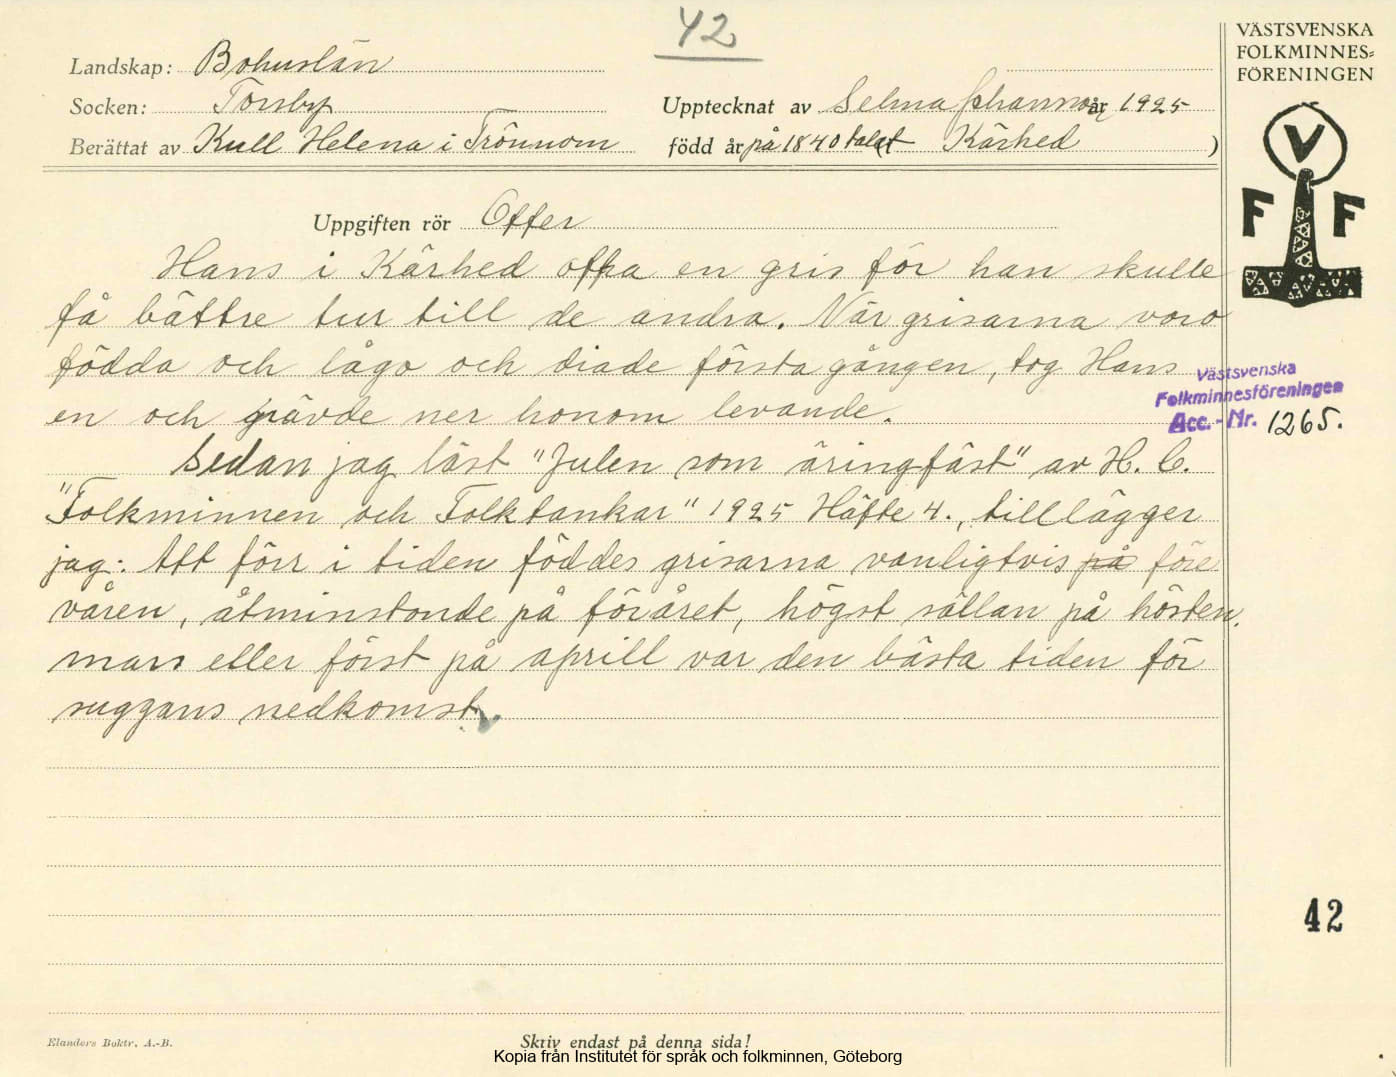 42
VÄSTSVENSKA
FOLKMINNES=
FÖRENINGEN
Landskap: Bohuslän
Socken: Torsby
Upptecknat av Selma Johansson år 1925
Berättat av Kull Helena i Trönnom
född år på 1840 talet Kärhed )
V
F F
Uppgiften rör Offer
Hans i Kärhed offra en gris för han skulle
få bättre tur till de andra. När grisarna voro
födda och lågo och diade första gången, tog Hans
en och grävde ner honom levande.
Västsvenska
Folkminnesföreningen
Acc.-Nr. 1265.
Sedan jag läst "Julen som äringsfäst" av H. C.
"Folkminnen och Folktankar" 1925 Häfte 4., tilllägger
jag: Att förr i tiden föddes grisarna vanligtvis på före
våren, åtminstonde på föråret, högst sällan på hösten.
mars eller först på aprill var den bästa tiden för
suggans nedkomst.
42
Elanders Boktr. A.-B.
Skriv endast på denna sida!
Kopia från Institutet för språk och folkminnen, Göteborg